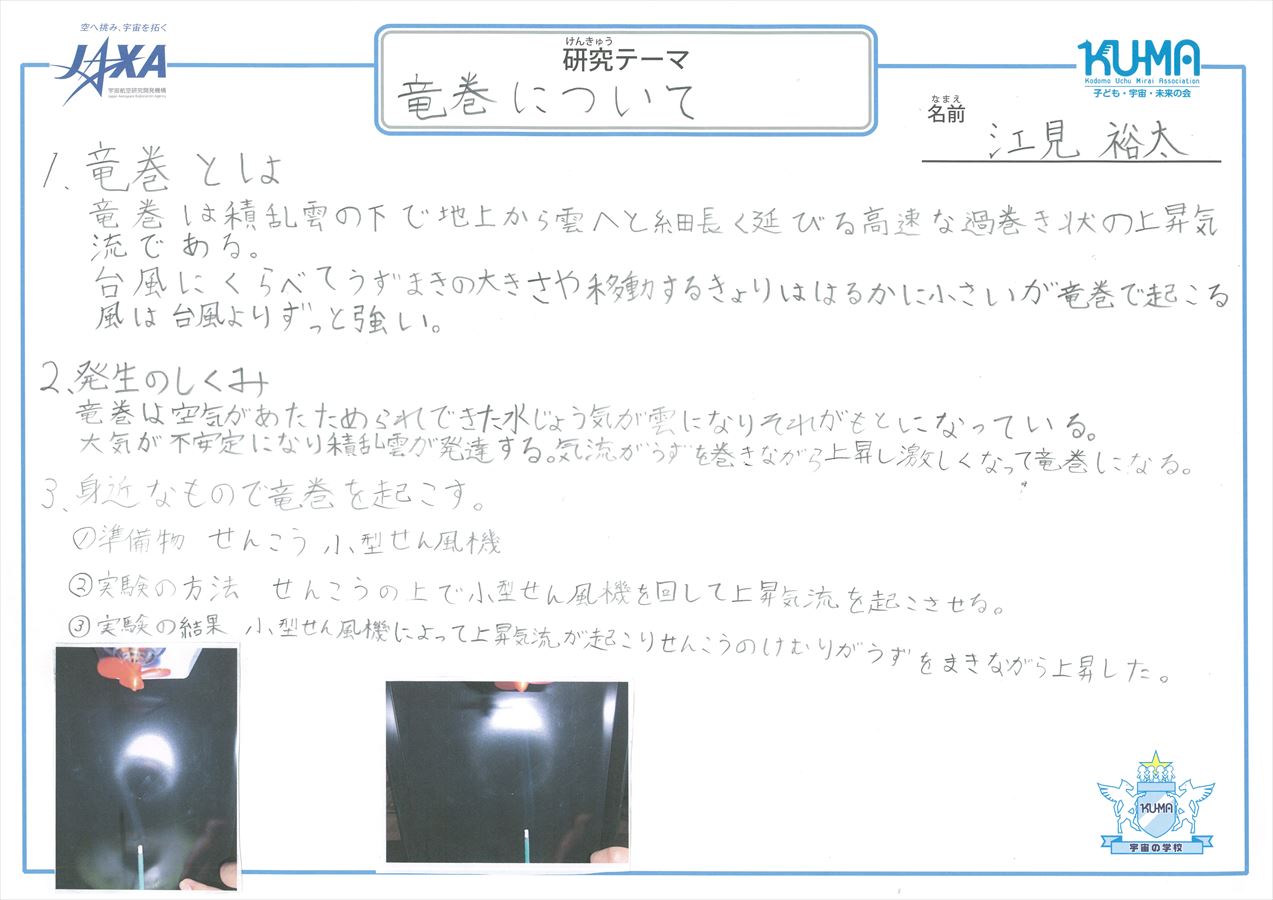 空へ挑み、宇宙を拓く
JAXA
宇宙航空研究開発機構
Japan Aerospace Exploration Agency
けんきゅう
研究テーマ
竜巻について
KU-MA
Kodomo Uchu Mirai Association
子ども・宇宙・未来の会
なまえ
名前
江見 裕太
1、竜巻とは
竜巻は積乱雲の下で地上から雲へと細長く延びる高速な過巻き状の上昇気
流である。
台風にくらべてうずまきの大きさや移動するきょりははるかに小さいが竜巻で起こる
風は台風よりずっと強い。
2、発生のしくみ
竜巻は空気があたためられできた水じょう気が雲になりそれがもとになっている。
大気が不安定になり積乱雲が発達する。気流がうずを巻きながら上昇し激しくなって竜巻になる。
3、身近なもので竜巻を起こす。
①準備物 せんこう 小型せん風機
②実験の方法 せんこうの上で小型せん風機を回して上昇気流を起こさせる。
③実験の結果 小型せん風機によって上昇気流が起こりせんこうのけむりがうずをまきながら上昇した。
KU-MA
宇宙の学校